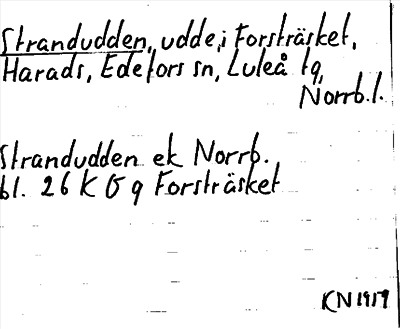 Strandudden, udde, i Forsträsket,
Harads, Edefors sn, Luleå tg,
Norrb. l.
Strandudden ek Norrb.
bl. 26 K G q Forsträsket
KN 1917